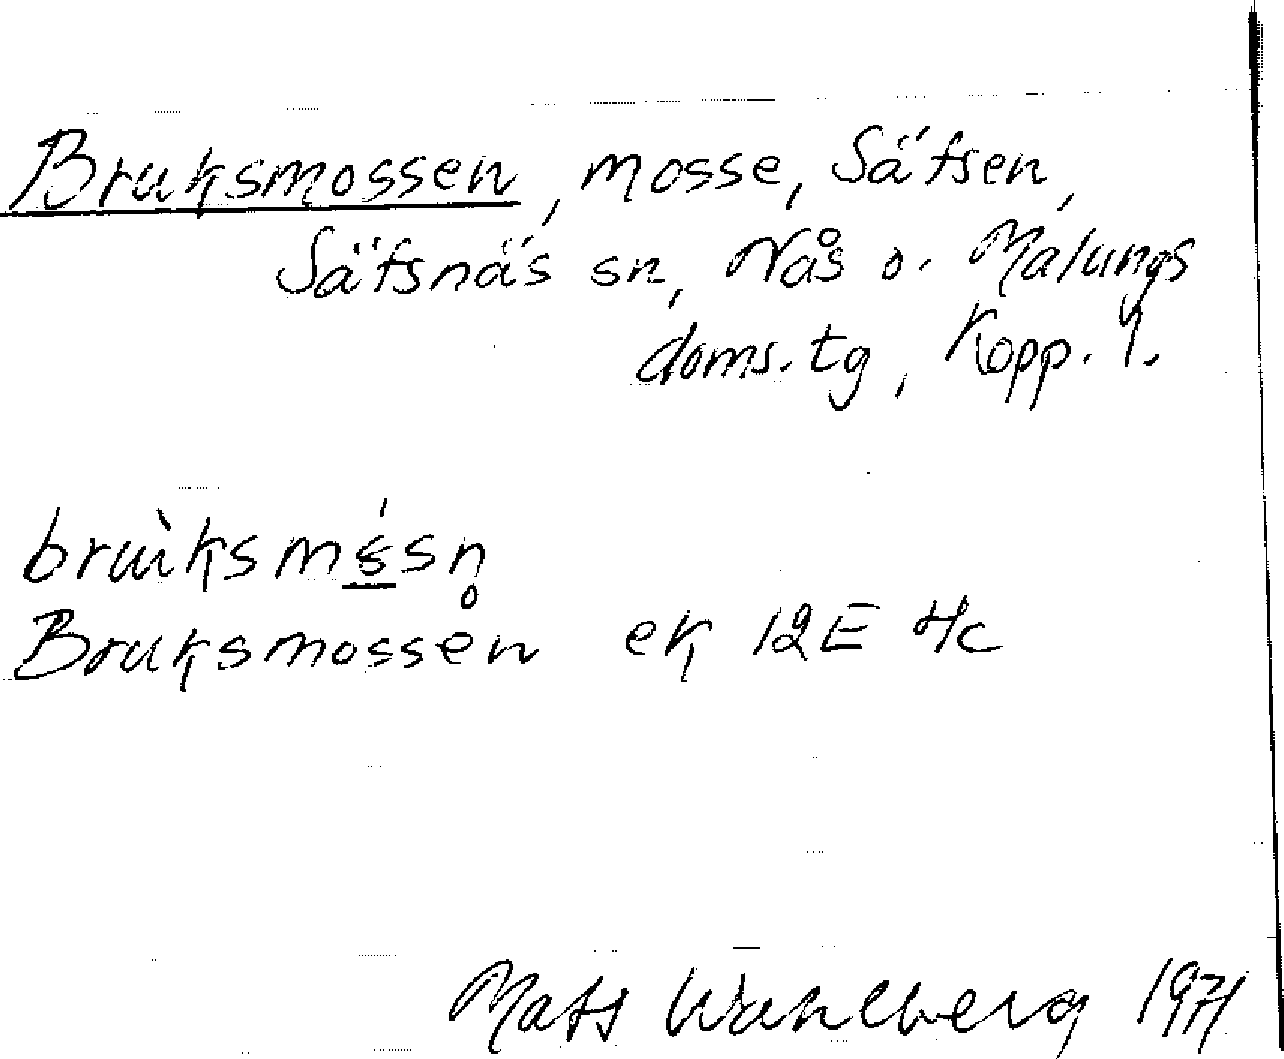 Bruksmossen, mosse, Säfsen,
Säfsnäs sn, Nås o. Malungs
doms.tg, Kopp. l.
Bruksmossen ek 12E 4c
Mats Wahlberg 1971